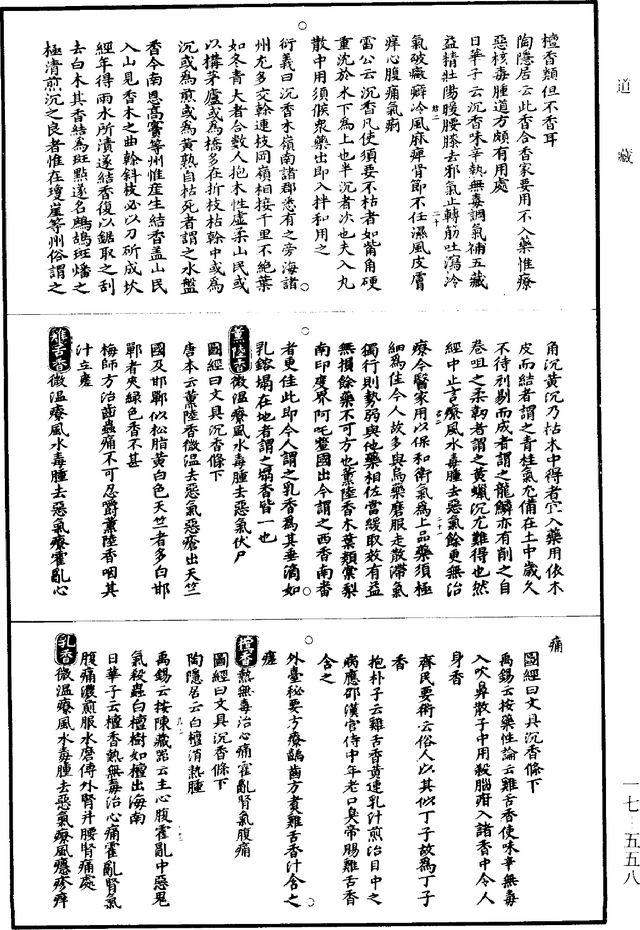 道藏
檀香類但不香耳
陶隱居云此香合香家要用不入藥惟療
惡核毒腫道方頗有用處
日華子云沉香味辛熱無毒調氣補五藏
益精壯陽暖腰膝去邪氣止轉筋吐瀉冷
氣破癥癖冷風麻痺骨節不任濕風皮膚
痒心腹痛氣痢
雷公云沉香凡使須要不枯者如觜角硬
重沉於水下為上也半沉者次也夫入丸
散中用須候衆藥出即入拌和用之
衍義曰沉香木嶺南諸郡悉有之旁海諸
州尤多交榦連枝岡嶺相接千里不絕葉
如冬青大者合數人抱木性虛柔山民或
以搆茅廬或為橋多在折枝枯榦中或為
沉或為煎或為黄熟自枯死者謂之水盤
香今南恩高竇等州惟産生結香盖山民
入山見香木之曲榦斜枝必以刀斫成坎
經年得雨水所漬遂結香復以鋸取之刮
去白木其香結為斑點遂名鷓鴣斑燔之
極清煎沉之良者惟在瓊崖等州俗謂之
角沉黄沉乃枯木中得者宜入藥用依木
皮而結者謂之青桂氣尤備在土中歲久
不待刓剔而成者謂之龍鱗亦有削之自
卷咀之柔韌者謂之黄蠟沉尤難得也然
經中止言療風水毒腫去惡氣餘更無治
療今醫家用以保和衛氣為上品藥須極
細為佳今人故多與烏藥磨服走散滯氣
獨行則勢弱與他藥相佐當緩取效有益
無損餘藥不可方也薰陸香木葉類棠梨
南印度界阿吒釐國出今謂之西香南番
者更佳此即今人謂之乳香為其垂滴如
乳鎔塌在地者謂之塌香皆一也
薰陸香微溫療風水毒腫去惡氣伏尸
圖經曰文具沉香條下
唐本云薰陸香微溫去惡氣惡瘡出天竺
國及邯鄲似松脂黄白色天竺者多白邯
鄲者夾綠色香不甚
梅師方治齒蟲痛不可忍嚼薰陸香咽其
汁立瘥
雞舌香微溫療風水毒腫去惡氣療霍亂心
痛
圖經曰文具沉香條下
禹錫云按藥性論云雞舌香使味辛無毒
入吹鼻散子中用殺腦疳入諸香中令人
身香
齊民要術云俗人以其似丁子故為丁子
香
抱朴子云雞舌香黄連乳汁煎治目中之
病應邵漢官侍中年老口臭帝賜雞舌香
含之
外臺秘要方療齲齒方煑雞舌香汁含之
瘥
檀香熱無毒治心痛霍亂腎氣腹痛
圖經曰文具沉香條下
陶隱居云白檀消熱腫
禹錫云按陳藏器云主心腹霍亂中惡鬼
氣殺蟲白檀樹如檀出海南
日華子云檀香熱無毒治心痛霍亂腎氣
腹痛濃煎服水磨傅外腎并腰腎痛處
乳香微溫療風水毒腫去惡氣療風癮疹痒
一七·五五八